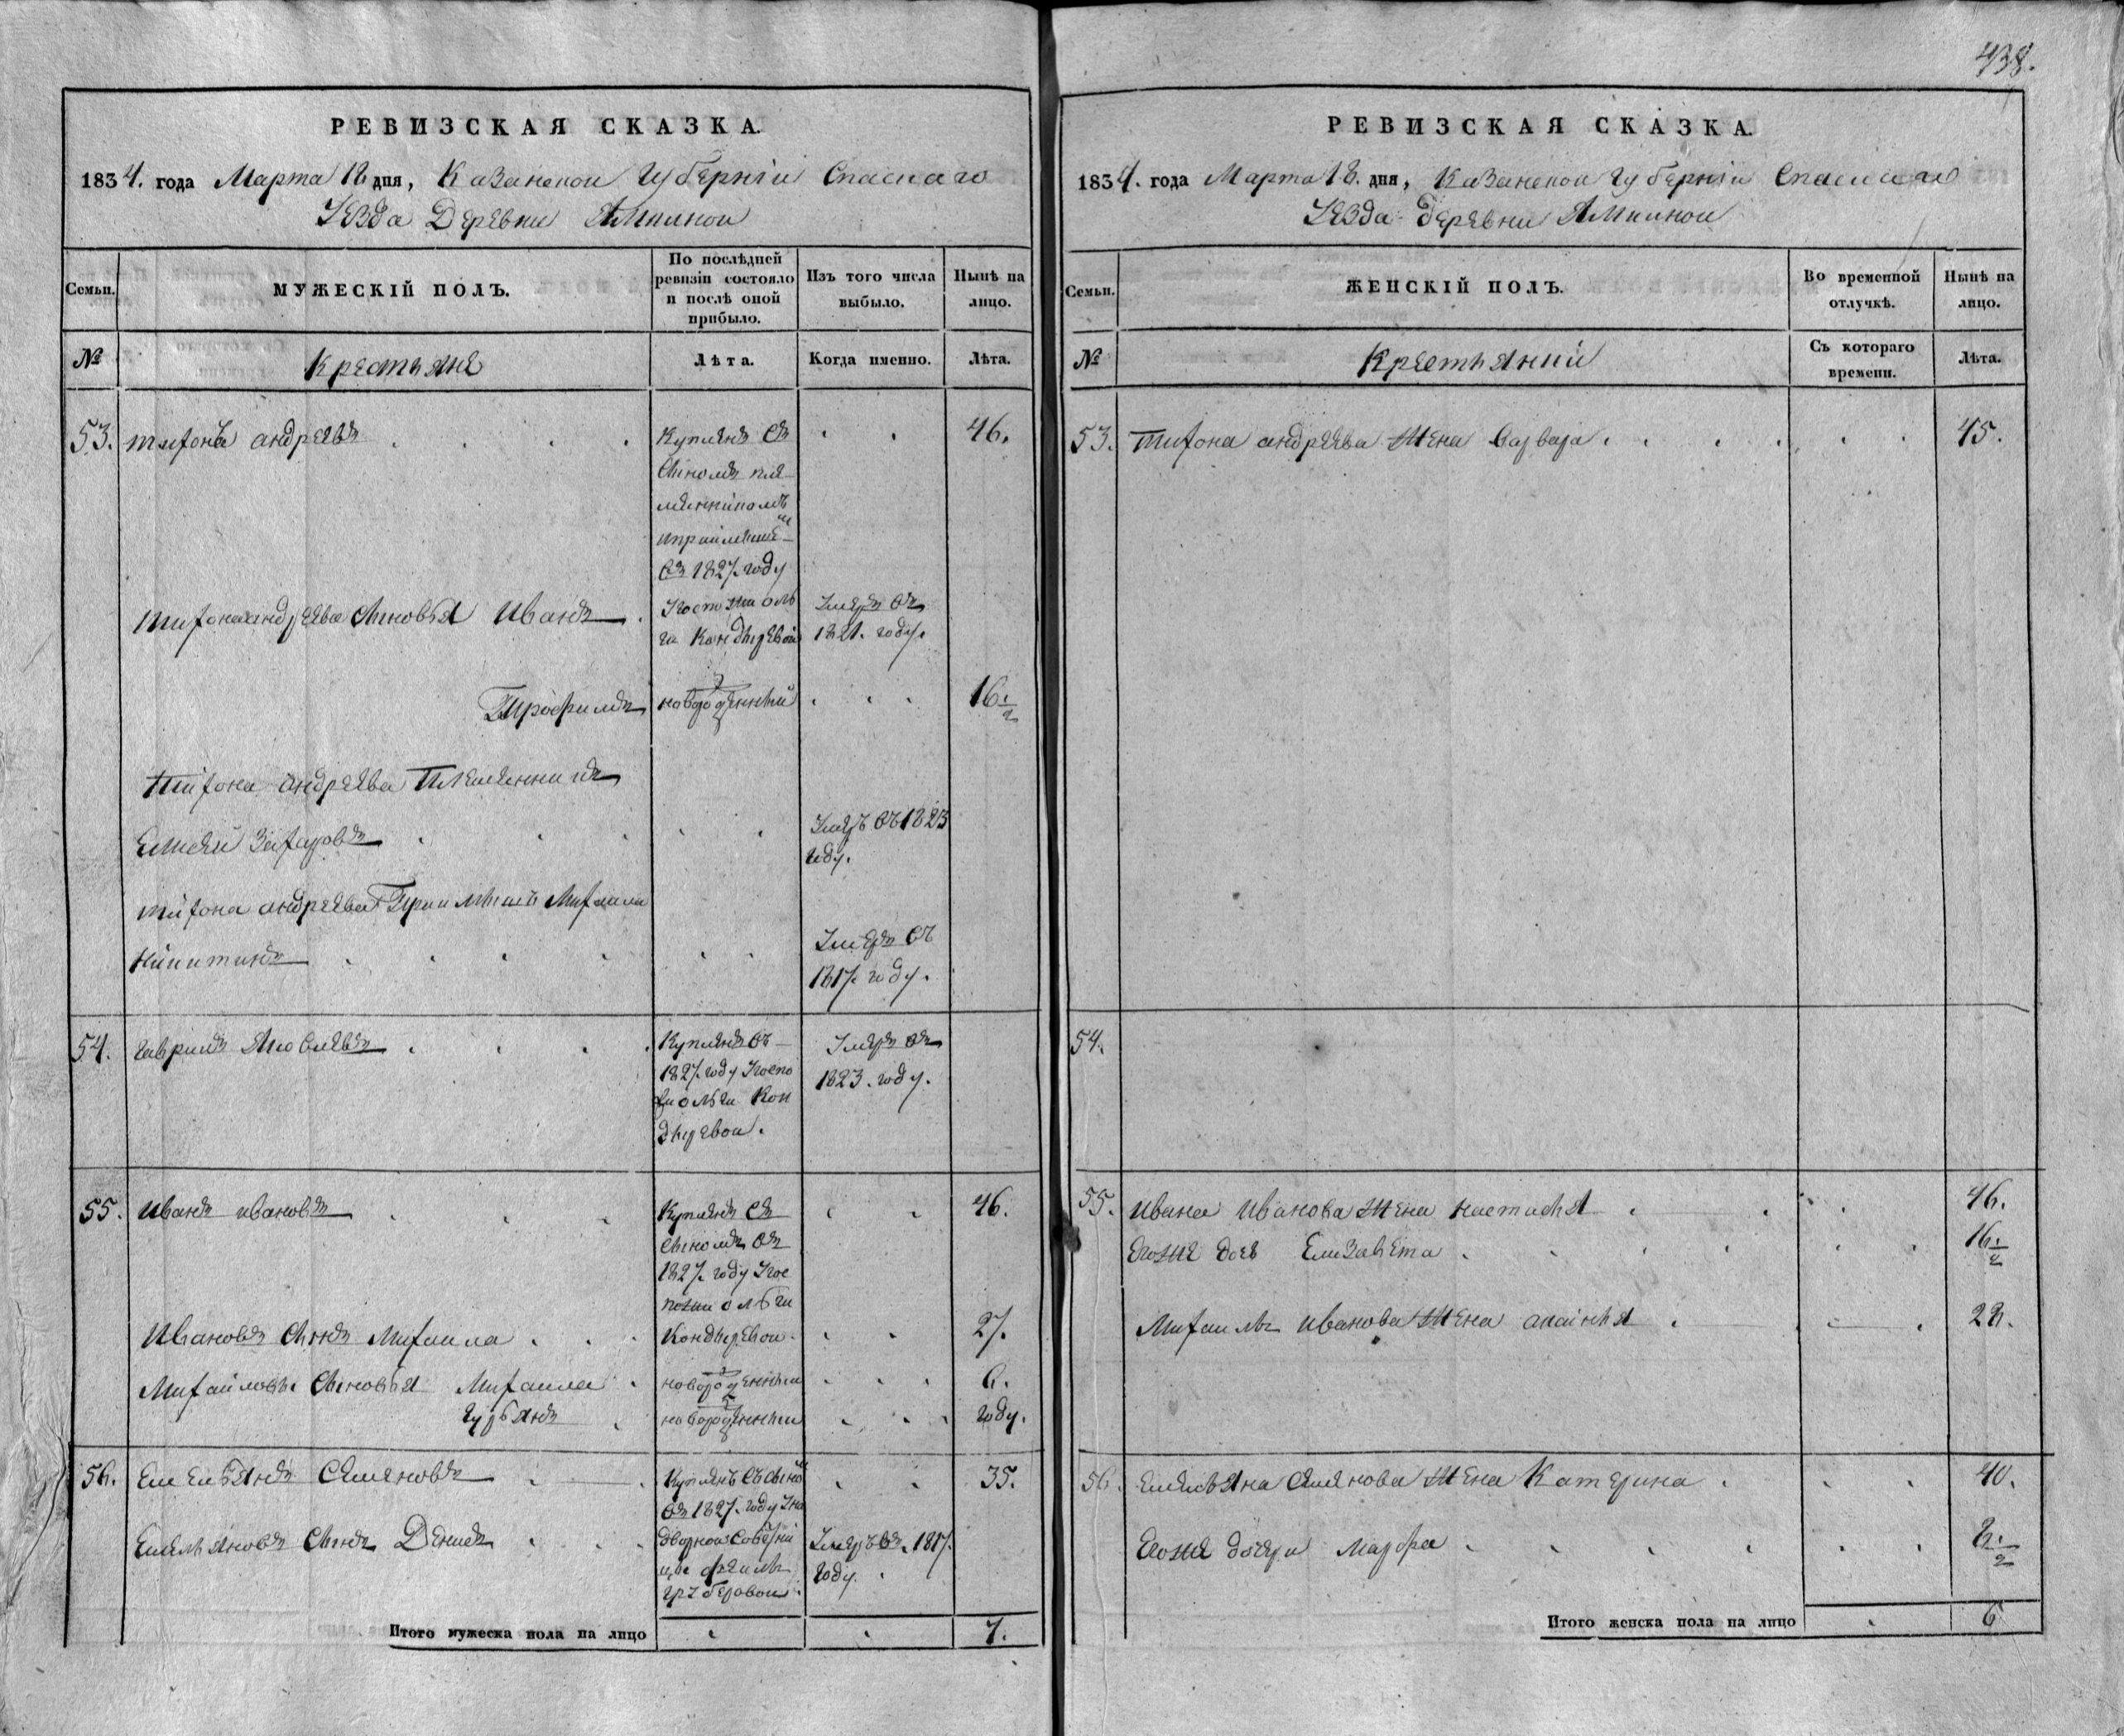 438.
РЕВИЗСКАЯ СКАЗКА.
1834. года Марта 18 дня, Казанской Губерніи Спаскаго
Уезда Деревни
Семьи.
МУЖЕСКІЙ ПОЛЪ.
По послѣдней
ревизіи состояло
и послѣ оной
прибыло.
Изъ того числа
выбыло.
Нынѣ на
лицо.
№
Крестьяне
Лѣта.
Когда именно.
Лѣта.
53. тихонъ андреевъ
Купленъ съ
сыномъ пле
менникомъ
въ 1827. году
46.
тихона андреева сыновья Иванъ
Угоспожи оль
ги Кондыревой
Умеръ въ
1821. году.
Трофимъ
новорожденный
16. 1/2
тихона андреева Племянникъ
Елисей Захаровъ
Умеръ въ 1823
году.
тихона андреева Приимышъ Михаила
никитинъ
Умеръ въ
1817. году.
54. гаврила Яковлевъ
Купленъ въ
1827. году Угоспо
жи ольги Кон
дыревой.
Умеръ въ
1823. году.
55. Иванъ ивановъ
Купленъ съ
сыномъ въ
1827. году Угос
пожи ольги
Кондыревой.
46.
Ивановъ сынъ Михаила
27.
Михайловы сыновья Михаила
новорожденный
6.
Гурьянъ
новорожденный
году.
56. Емельянъ Семеновъ
Купленъ съ сыно
въ 1827. году Уна
35.
Емельяновъ сынъ Денисъ
дворной Советни
цы
Умеръ въ 1817.
году.
Итого мужеска пола на лицо
7.
РЕВИЗСКАЯ СКАЗКА.
1834. года Марта 18. дня, Казанской Губерніи
Уезда деревни
Семьи.
ЖЕНСКІЙ ПОЛЪ.
Во временной
отлучкѣ.
Нынѣ на
лицо.
№
Съ котораго
времени.
Лѣта.
53. тихона андреева жена варвара
45.
54.
55. Ивана Иванова жена настасья
46.
Егоже дочь Елизавета
16. 1/2
Михаилы иванова жена
28.
56. Емельяна семенова жена Катерина
40.
Егоже дочери марфа
8. 1/2
Итого женска пола на лицо
6